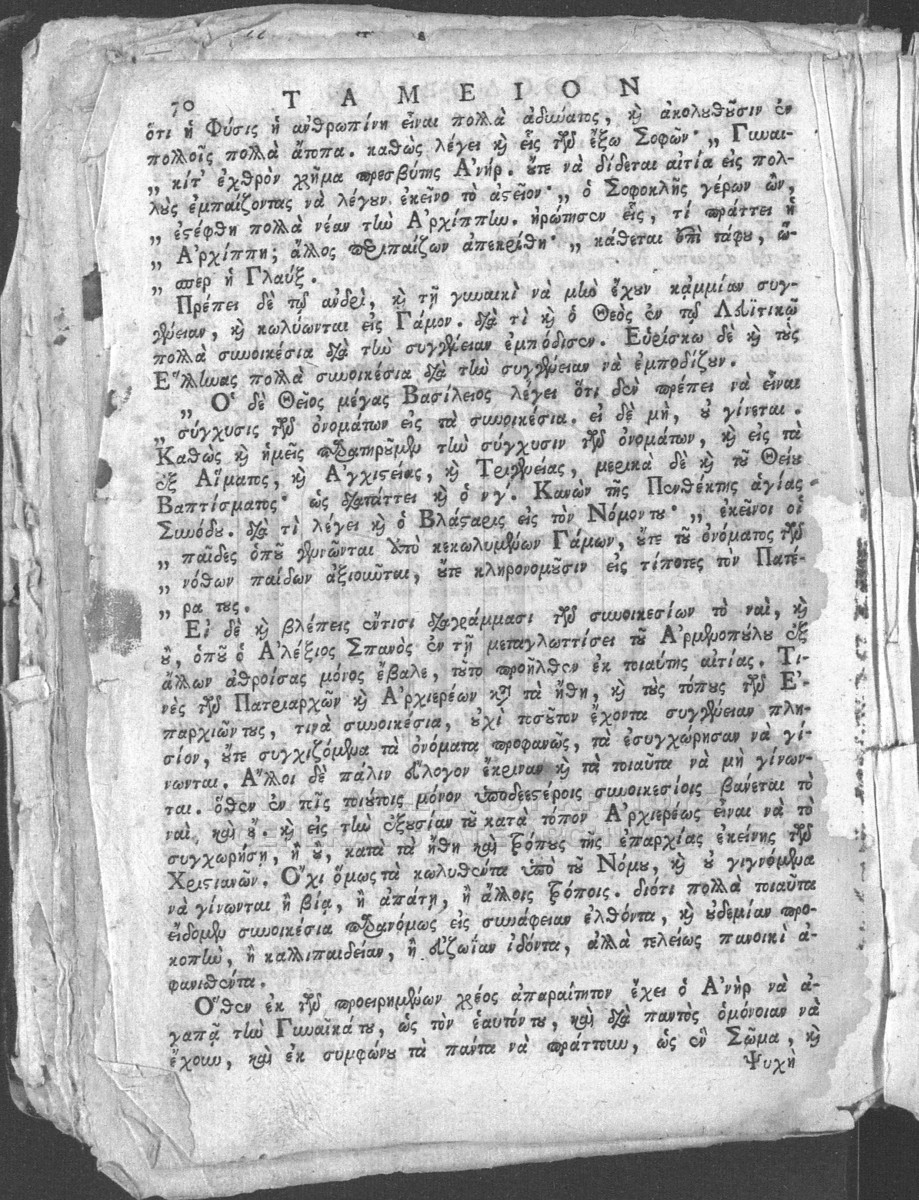 70 ΤΑΜΕΙΟΝ
ὅτι ἡ Φύσις ἡ ἀνθρωπίνη εἶναι πολλὰ ἀδύνατος, ϗ ἀκολουθοῦσιν ἐν
πολλοῖς πολλὰ ἄτοπα. καθὼς λέγει ϗ εἷς τῶν ἔξω Σοφῶν· „ Γυναι-
„ κίτ' ἐχθρὸν χρῆμα πρεσβύτης Ἀνήρ. οὔτε νὰ δίδεται αἰτία εἰς πολ-
λοὺς ἐμπαίζοντας νὰ λέγουν ἐκεῖνο τὸ ἀστεῖον· „ ὁ Σοφοκλῆς γέρων ὢν,
„ ἐστέφθη πολλὰ νέαν τὴν Ἀρχίππην. ἠρώτησεν εἷς, τί πράττει ἡ
„ Ἀρχίππη; ἄλλος περιπαίζων ἀπεκρίθη· „ κάθεται ἐπὶ τάφου, ὥ-
„ σπερ ἡ Γλαύξ.
Πρέπει δὲ τῷ ἀνδρὶ, ϗ τῇ γυναικὶ νὰ μὴν ἔχουν καμμίαν συγ-
γένειαν, ϗ κωλύωνται εἰς Γάμον. διὰ τὶ ϗ ὁ Θεὸς ἐν τῷ Λευϊτικῷ
πολλὰ συνοικέσια διὰ τὴν συγγένειαν ἐμπόδισεν. Εὑρίσκω δὲ ϗ τοὺς
Ἕλληνας πολλὰ συνοικέσια διὰ τὴν συγγένειαν νὰ ἐμποδίζουν.
„ Ὁ δὲ Θεῖος μέγας Βασίλειος λέγει ὅτι δὲν πρέπει νὰ εἶναι
„ σύγχυσις τῶν ὀνομάτων εἰς τὰ συνοικέσια. εἰ δὲ μὴ, οὐ γίνεται.
Καθὼς ϗ ἡμεῖς παρατηροῦμεν τὴν σύγχυσιν τῶν ὀνομάτων, ϗ εἰς τὰ
ἐξ Αἵματος, ϗ Ἀγχιστείας, ϗ Τριγενείας, μερικὰ δὲ ϗ τοῦ Θείου
Βαπτίσματος· ὡς διατάττει ϗ ὁ νγʹ. Κανὼν τῆς Πενθέκτης ἁγίας
Συνόδου. διὰ τὶ λέγει ϗ ὁ Βλάσταρις εἰς τὸν Νόμον του· „ ἐκεῖνοι οἱ
„ παῖδες ὁποῦ γεννῶνται ἀπὸ κεκωλυμένων Γάμων, οὔτε τοῦ ὀνόματος τῶν
„ νόθων παίδων ἀξιοῦνται, οὔτε κληρονομοῦσιν εἰς τίποτες τὸν Πατέ-
„ ρα τους.
Εἰ δὲ ϗ βλέπεις οὕτισι διαγράμμασι τῶν συνοικεσίων τὸ ναὶ, ϗ
οὔ, ὁποῦ ὁ Ἀλέξιος Σπανὸς ἐν τῇ μεταγλωττίσει τοῦ Ἀρμενοπούλου ἐξ
ἄλλων ἀθροίσας μόνος ἔβαλε, τοῦτο προῆλθεν ἐκ τοιαύτης αἰτίας. Τι-
νὲς τῶν Πατριαρχῶν ϗ Ἀρχιερέων κατὰ τὰ ἤθη, ϗ τοὺς τόπους τῶν Ἐ-
παρχιῶν τους, τινὰ συνοικέσια, οὐχὶ τοσοῦτον ἔχοντα συγγένειαν πλη-
σίον, οὔτε συγχιζόμενα τὰ ὀνόματα προφανῶς, τὰ ἐσυγχώρησαν νὰ γί-
νωνται. Ἄλλοι δὲ πάλιν εὔλογον ἔκριναν ϗ τὰ τοιαῦτα νὰ μὴ γίνων-
ται. ὅθεν ἐν τοῖς τοιούτοις μόνον ὑποδεεστέροις συνοικεσίοις βάνεται τὸ
ναὶ, καὶ οὔ. ϗ εἰς τὴν ἐξουσίαν τοῦ κατὰ τόπον Ἀρχιερέως εἶναι νὰ τὸ
συγχωρήσῃ, ἢ οὔ, κατὰ τὰ ἤθη καὶ τρόπους τῆς ἐπαρχίας ἐκείνης τῶν
Χριστιανῶν. Ὄχι ὅμως τὰ κωλυθέντα ὑπὸ τοῦ Νόμου, ϗ οὐ γιγνόμενα
νὰ γίνωνται ἢ βίᾳ, ἢ ἀπάτῃ, ἢ ἄλλοις τρόποις. διότι πολλὰ τοιαῦτα
εἴδομεν συνοικέσια παρανόμως εἰς συνάφειαν ἐλθόντα, ϗ οὐδεμίαν προ-
κοπὴν, ἢ καλλιπαιδείαν, ἢ εὐζωΐαν ἰδόντα, ἀλλὰ τελείως πανοικὶ ἀ-
φανισθέντα.
Ὅθεν ἐκ τῶν προειρημένων χρέος ἀπαραίτητον ἔχει ὁ Ἀνὴρ νὰ ἀ-
γαπᾷ τὴν Γυναῖκά του, ὡς τὸν ἑαυτόν του, καὶ διὰ παντὸς ὁμόνοιαν νὰ
ἔχουν, καὶ ἐκ συμφώνου τὰ πάντα νὰ πράττουν, ὡς ἓν Σῶμα, ϗ
Ψυχὴ